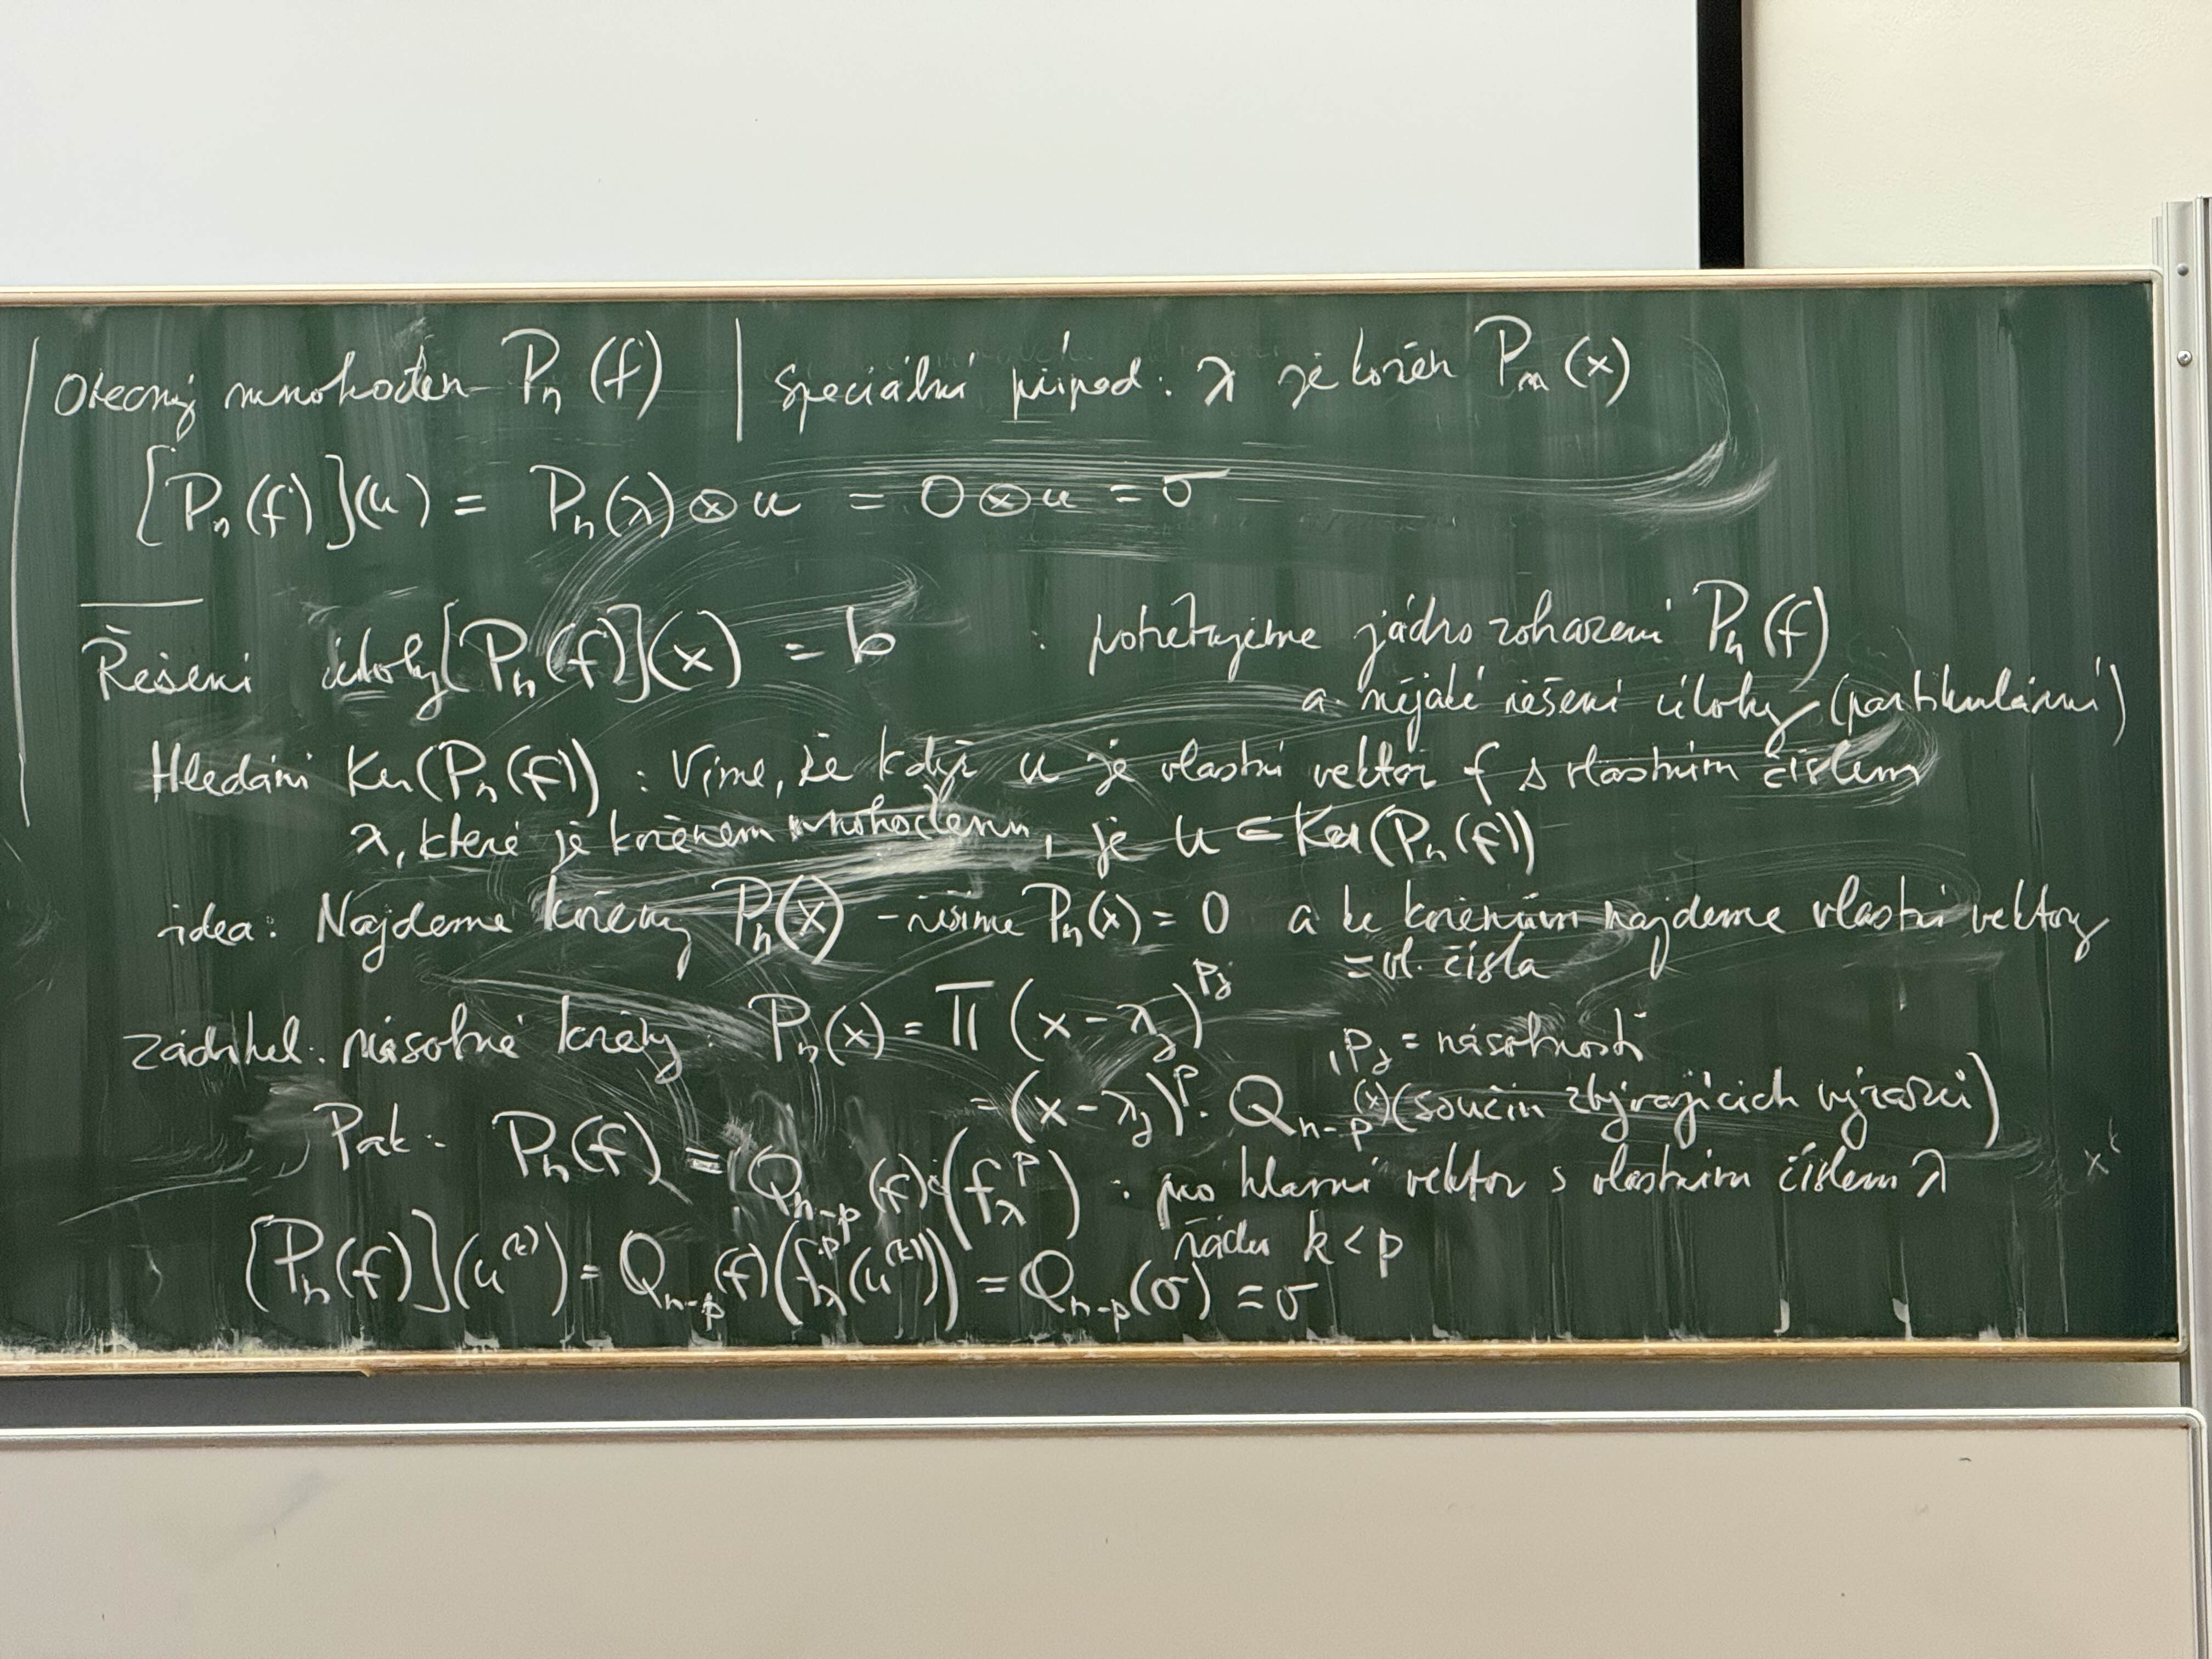 Obecný mnohočlen Pₙ(f) | speciální případ: λ je kořen Pₙ(x)
[Pₙ(f)](u) = Pₙ(λ) ⊗ u = 0 ⊗ u = σ
Řešení úlohy [Pₙ(f)](x) = b : potřebujeme jádro zobrazení Pₙ(f)
a nějaké řešení úlohy (partikulární)
Hledání Ker(Pₙ(f)) : Víme, že když u je vlastní vektor f s vlastním číslem
λ, které je kořenem mnohočlenu, je u ∈ Ker(Pₙ(f))
idea: Najdeme kořeny Pₙ(x) - řešíme Pₙ(x) = 0 a ke kořenům najdeme vlastní vektory
= vl. čísla
zádrhel: násobné kořeny: Pₙ(x) = Π (x - λⱼ)^pⱼ , pⱼ = násobnosti
= (x - λⱼ)^p · Qₙ₋ₚ(x) (součin zbývajících výrazů)
Pak: Pₙ(f) = Qₙ₋ₚ(f) (f_λ^p) : pro hlavní vektor s vlastním číslem λ
řádu k < p
[Pₙ(f)](u^(k)) = Qₙ₋ₚ(f)(f_λ^p(u^(k))) = Qₙ₋ₚ(σ) = σ